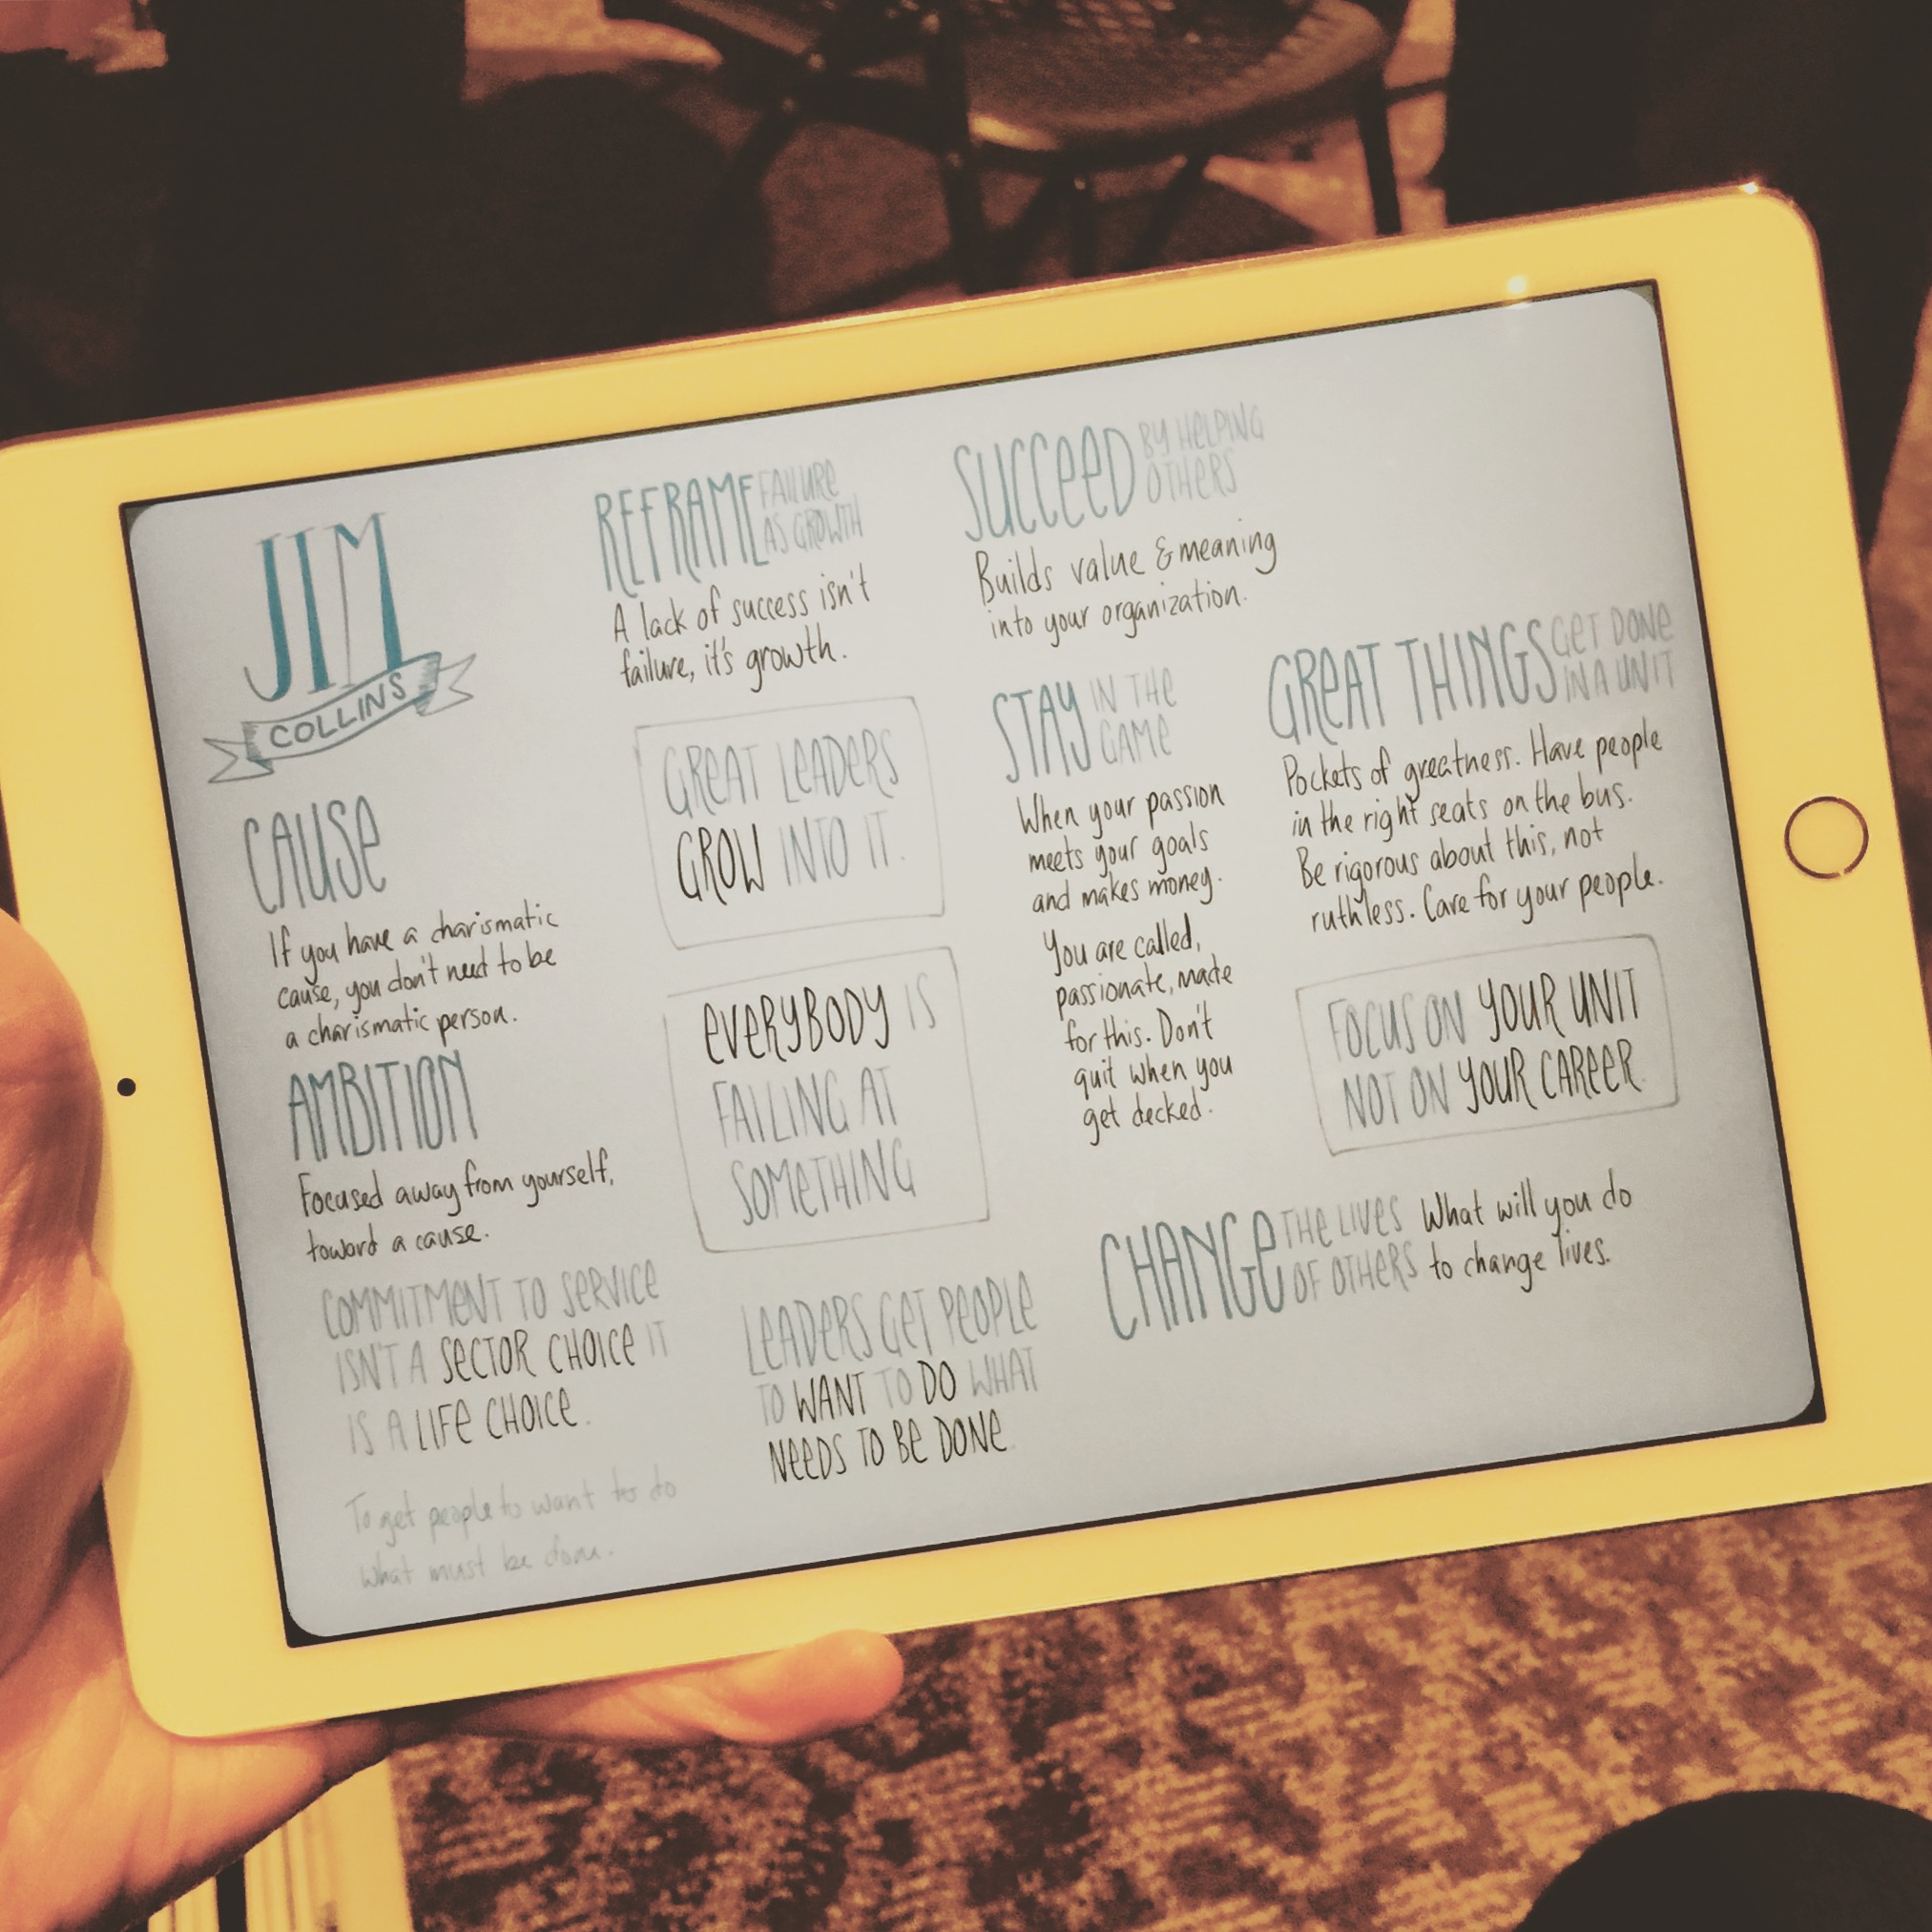 JIM
COLLINS
CAUSE
If you have a charismatic
cause, you don't need to be
a charismatic person.
AMBITION
Focused away from yourself,
toward a cause.
COMMITMENT TO SERVICE
ISN'T A SECTOR CHOICE IT
IS A LIFE CHOICE.
To get people to want to do
what must be done.
REFRAME FAILURE
AS GROWTH
A lack of success isn't
failure, it's growth.
GREAT LEADERS
GROW INTO IT.
EVERYBODY IS
FAILING AT
SOMETHING
LEADERS GET PEOPLE
TO WANT TO DO WHAT
NEEDS TO BE DONE.
SUCCEED BY HELPING
OTHERS
Builds value & meaning
into your organization.
STAY IN THE
GAME
When your passion
meets your goals
and makes money.
You are called,
passionate, made
for this. Don't
quit when you
get decked.
GREAT THINGS GET DONE
IN A UNIT
Pockets of greatness. Have people
in the right seats on the bus.
Be rigorous about this, not
ruthless. Care for your people.
FOCUS ON YOUR UNIT
NOT ON YOUR CAREER.
CHANGE THE LIVES
OF OTHERS
What will you do
to change lives.